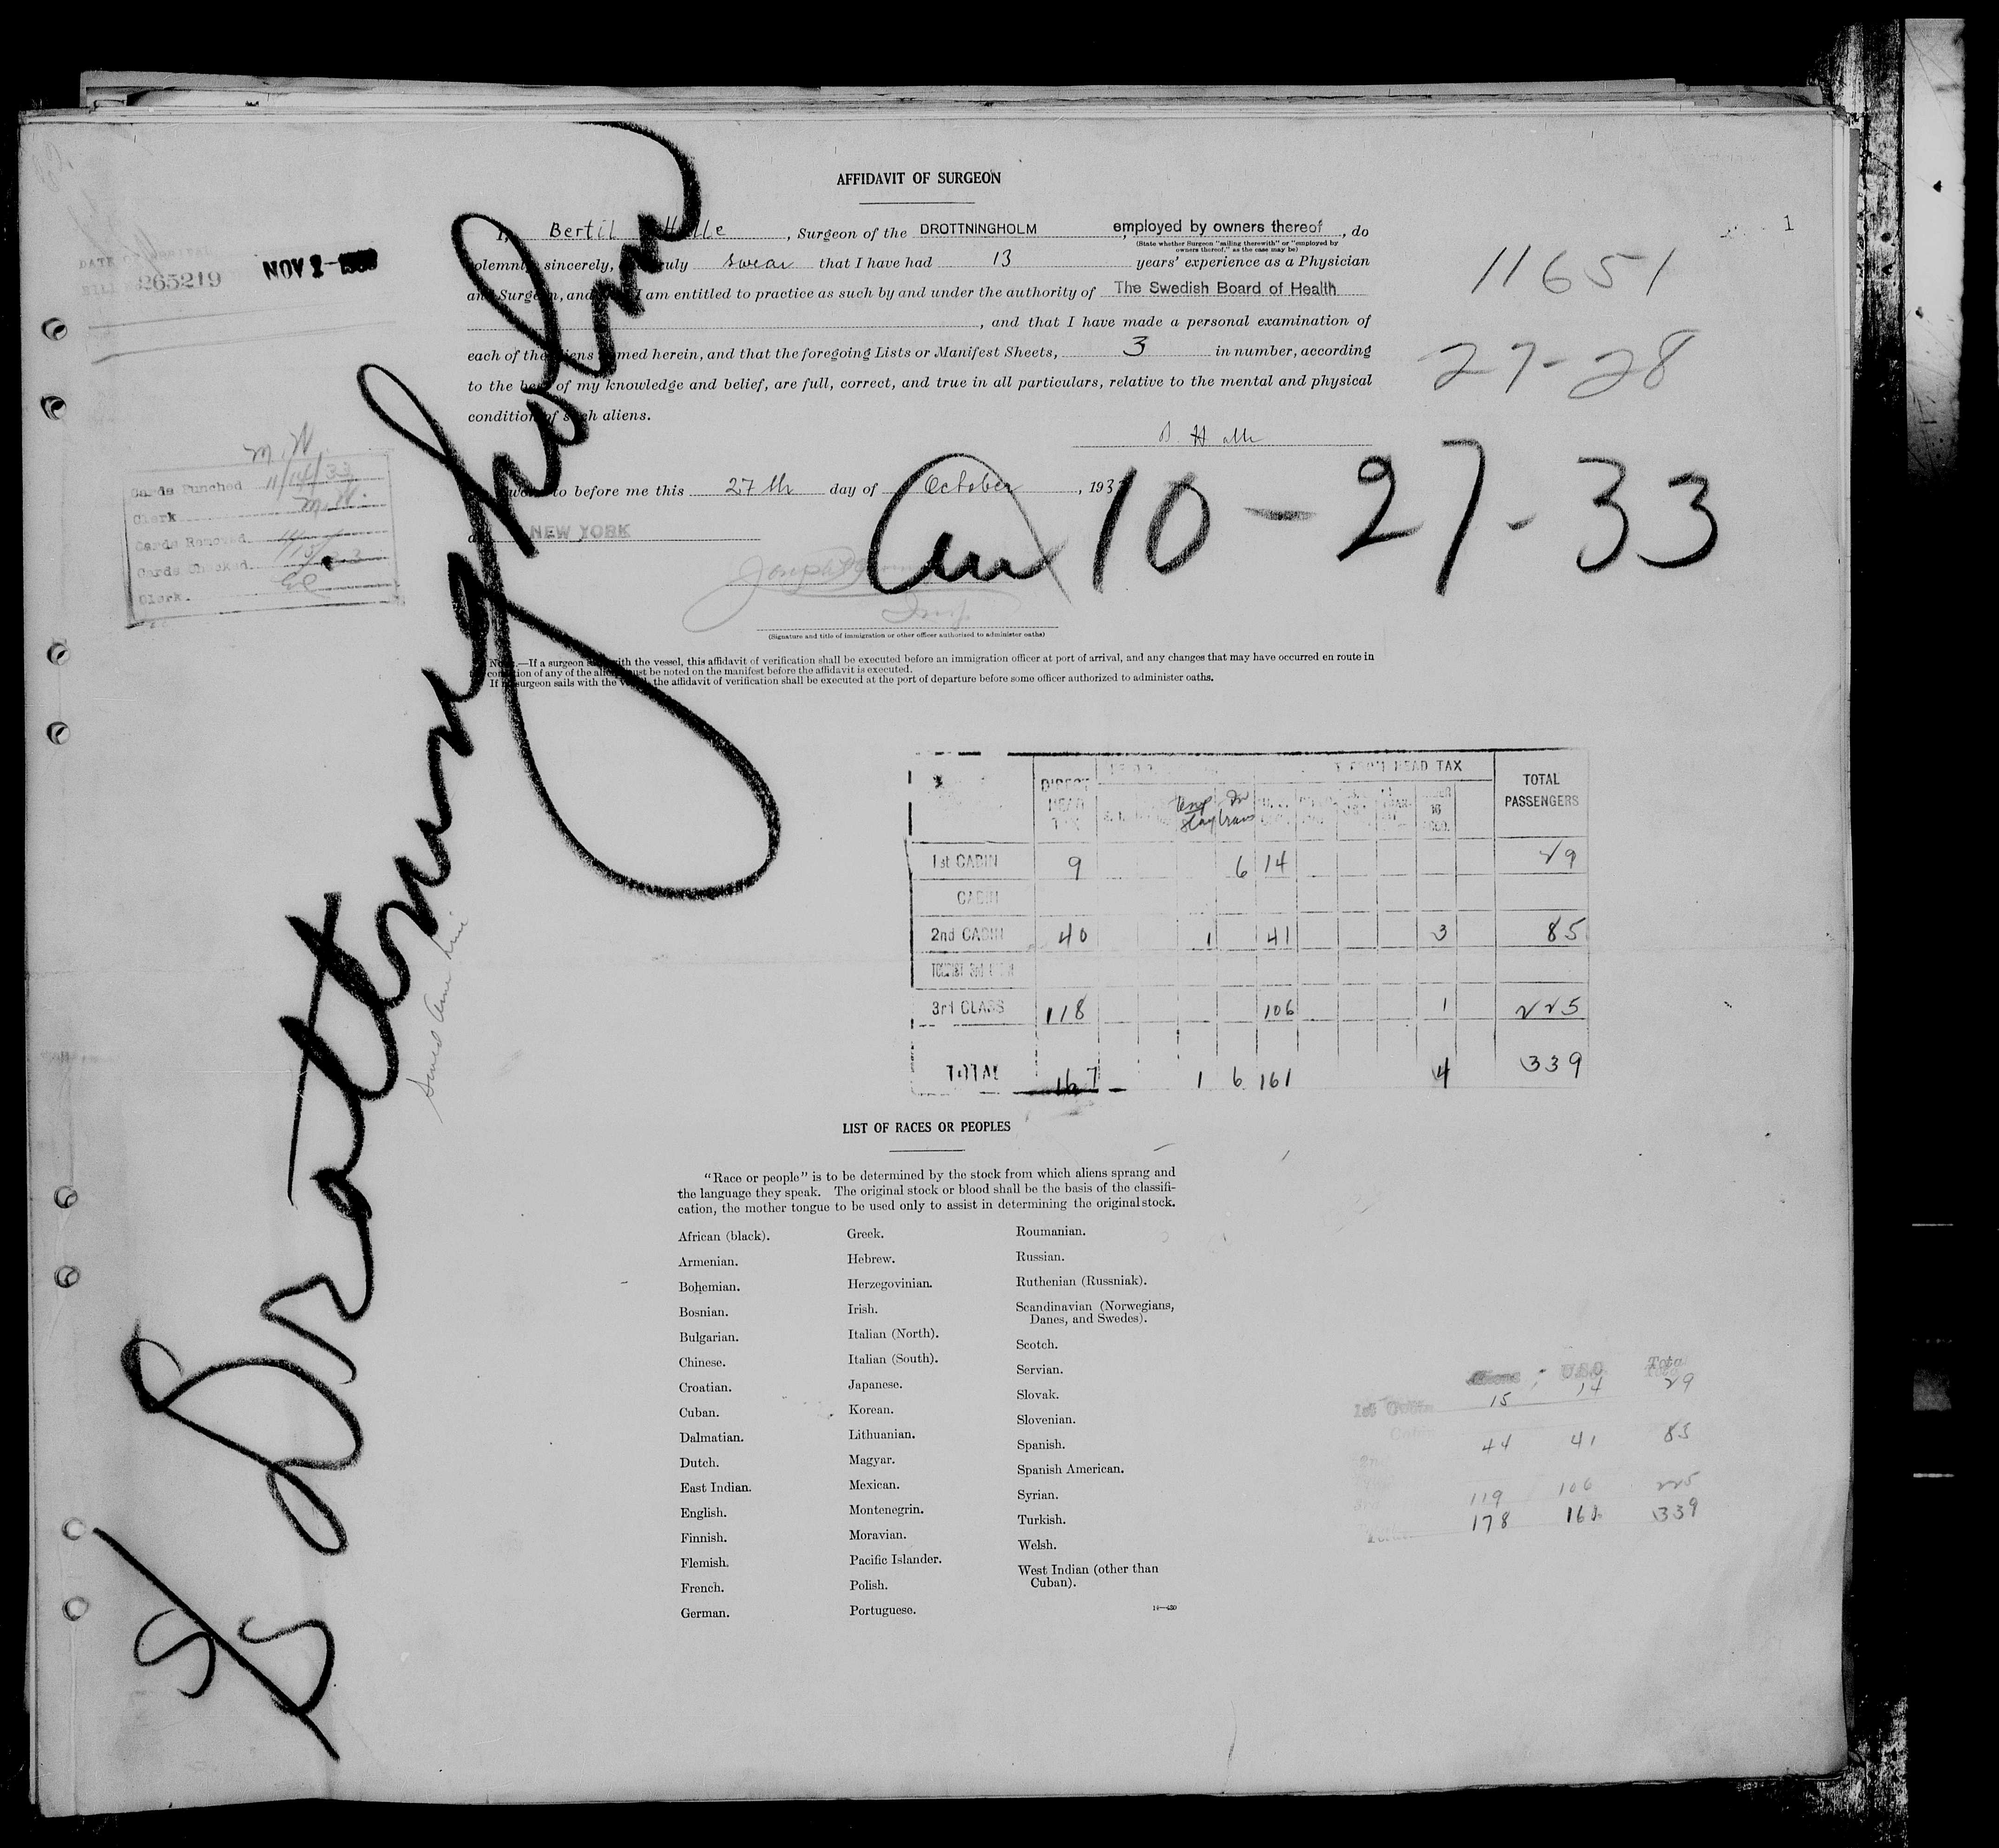 AFFIDAVIT OF SURGEON
1
I, Bertil Halle, Surgeon of the DROTTNINGHOLM, employed by owners thereof, do
(State whether Surgeon "sailing therewith" or "employed by
owners thereof," as the case may be)
solemnly, sincerely, truly swear that I have had 13 years' experience as a Physician
and Surgeon, and I am entitled to practice as such by and under the authority of The Swedish Board of Health
, and that I have made a personal examination of
each of the aliens named herein, and that the foregoing Lists or Manifest Sheets, 3 in number, according
to the best of my knowledge and belief, are full, correct, and true in all particulars, relative to the mental and physical
condition of such aliens.
B. Halle
Sworn to before me this 27th day of October, 193
at NEW YORK
(Signature and title of immigration or other officer authorized to administer oaths)
NOTE.—If a surgeon sails with the vessel, this affidavit of verification shall be executed before an immigration officer at port of arrival, and any changes that may have occurred en route in
the condition of any of the aliens must be noted on the manifest before the affidavit is executed.
If no surgeon sails with the vessel, the affidavit of verification shall be executed at the port of departure before some officer authorized to administer oaths.
11651
27-28
10-27-33
265219
NOV 2-
M.W.
Cards Punched 11/14/33
Clerk M.W.
Cards Removed
Cards Checked
Clerk.
S/S Drottningholm
Swed Am Line
DIRECT HEAD TAX
HEAD TAX
TOTAL PASSENGERS
1st CABIN 9 6 14 29
CABIN
2nd CABIN 40 1 41 3 85
TOURIST 3rd CABIN
3rd CLASS 118 106 1 225
TOTAL 167 1 6 161 4 339
LIST OF RACES OR PEOPLES
"Race or people" is to be determined by the stock from which aliens sprang and
the language they speak. The original stock or blood shall be the basis of the classifi-
cation, the mother tongue to be used only to assist in determining the original stock.
African (black).
Armenian.
Bohemian.
Bosnian.
Bulgarian.
Chinese.
Croatian.
Cuban.
Dalmatian.
Dutch.
East Indian.
English.
Finnish.
Flemish.
French.
German.
Greek.
Hebrew.
Herzegovinian.
Irish.
Italian (North).
Italian (South).
Japanese.
Korean.
Lithuanian.
Magyar.
Mexican.
Montenegrin.
Moravian.
Pacific Islander.
Polish.
Portuguese.
Roumanian.
Russian.
Ruthenian (Russniak).
Scandinavian (Norwegians,
Danes, and Swedes).
Scotch.
Servian.
Slovak.
Slovenian.
Spanish.
Spanish American.
Syrian.
Turkish.
Welsh.
West Indian (other than
Cuban).
14—430
Aliens U.S.C. Total
15 14 29
44 41 85
119 106 225
178 161 339